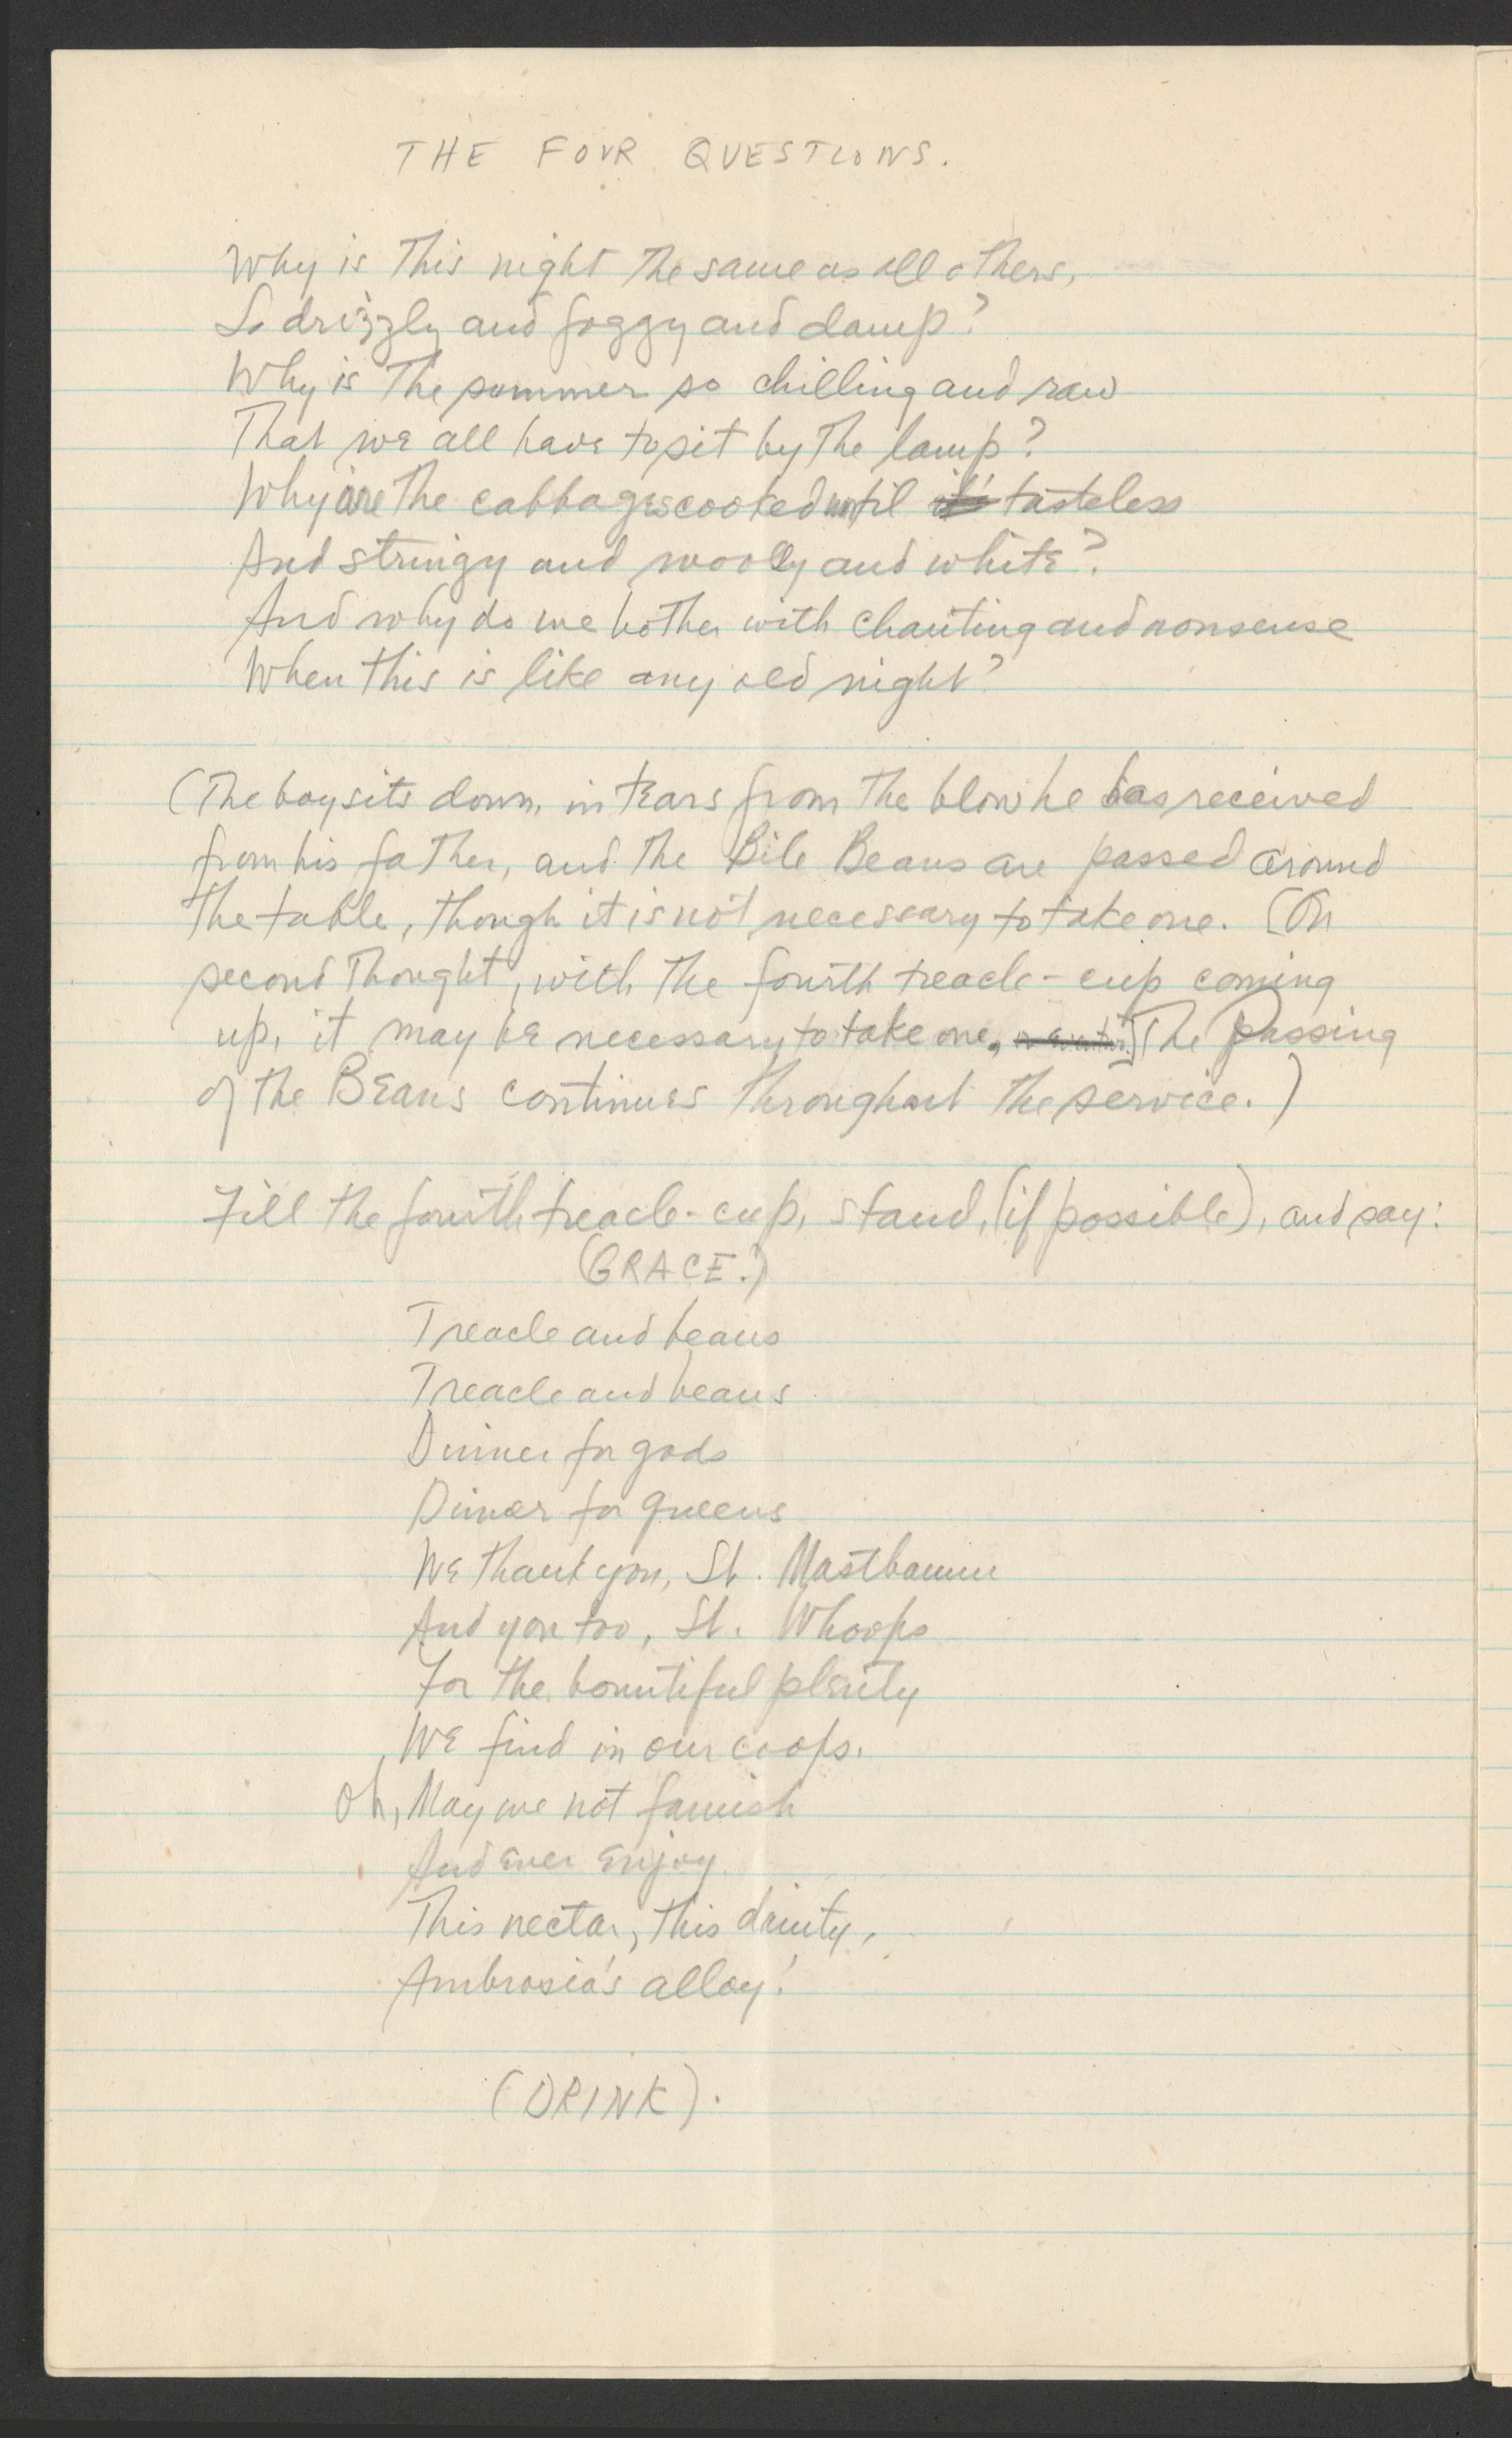 THE FOUR QUESTIONS.
Why is this night the same as all others,
So drizzly and foggy and damp?
Why is the summer so chilling and raw
That we all have to sit by the lamp?
Why are the cabbages cooked until tasteless
And stringy and woolly and white?
And why do we bother with chanting and nonsense
When this is like any old night?
(The boy sits down, in tears from the blow he has received
from his father, and the Bile Beans are passed around
the table, though it is not necessary to take one. [On
second thought, with the fourth treacle-cup coming
up, it may be necessary to take one.] The passing
of the Beans continues throughout the service.)
Fill the fourth treacle-cup, stand, (if possible), and say:
(GRACE.)
Treacle and beans
Treacle and beans
Dinner for gods
Dinner for queens
We thank you, St. Mastbaumm
And you too, St. Whoops
For the bountiful plenty
We find in our coops.
Oh, May we not famish
And ever enjoy
This nectar, this dainty,
Ambrosia's alloy!
(DRINK).